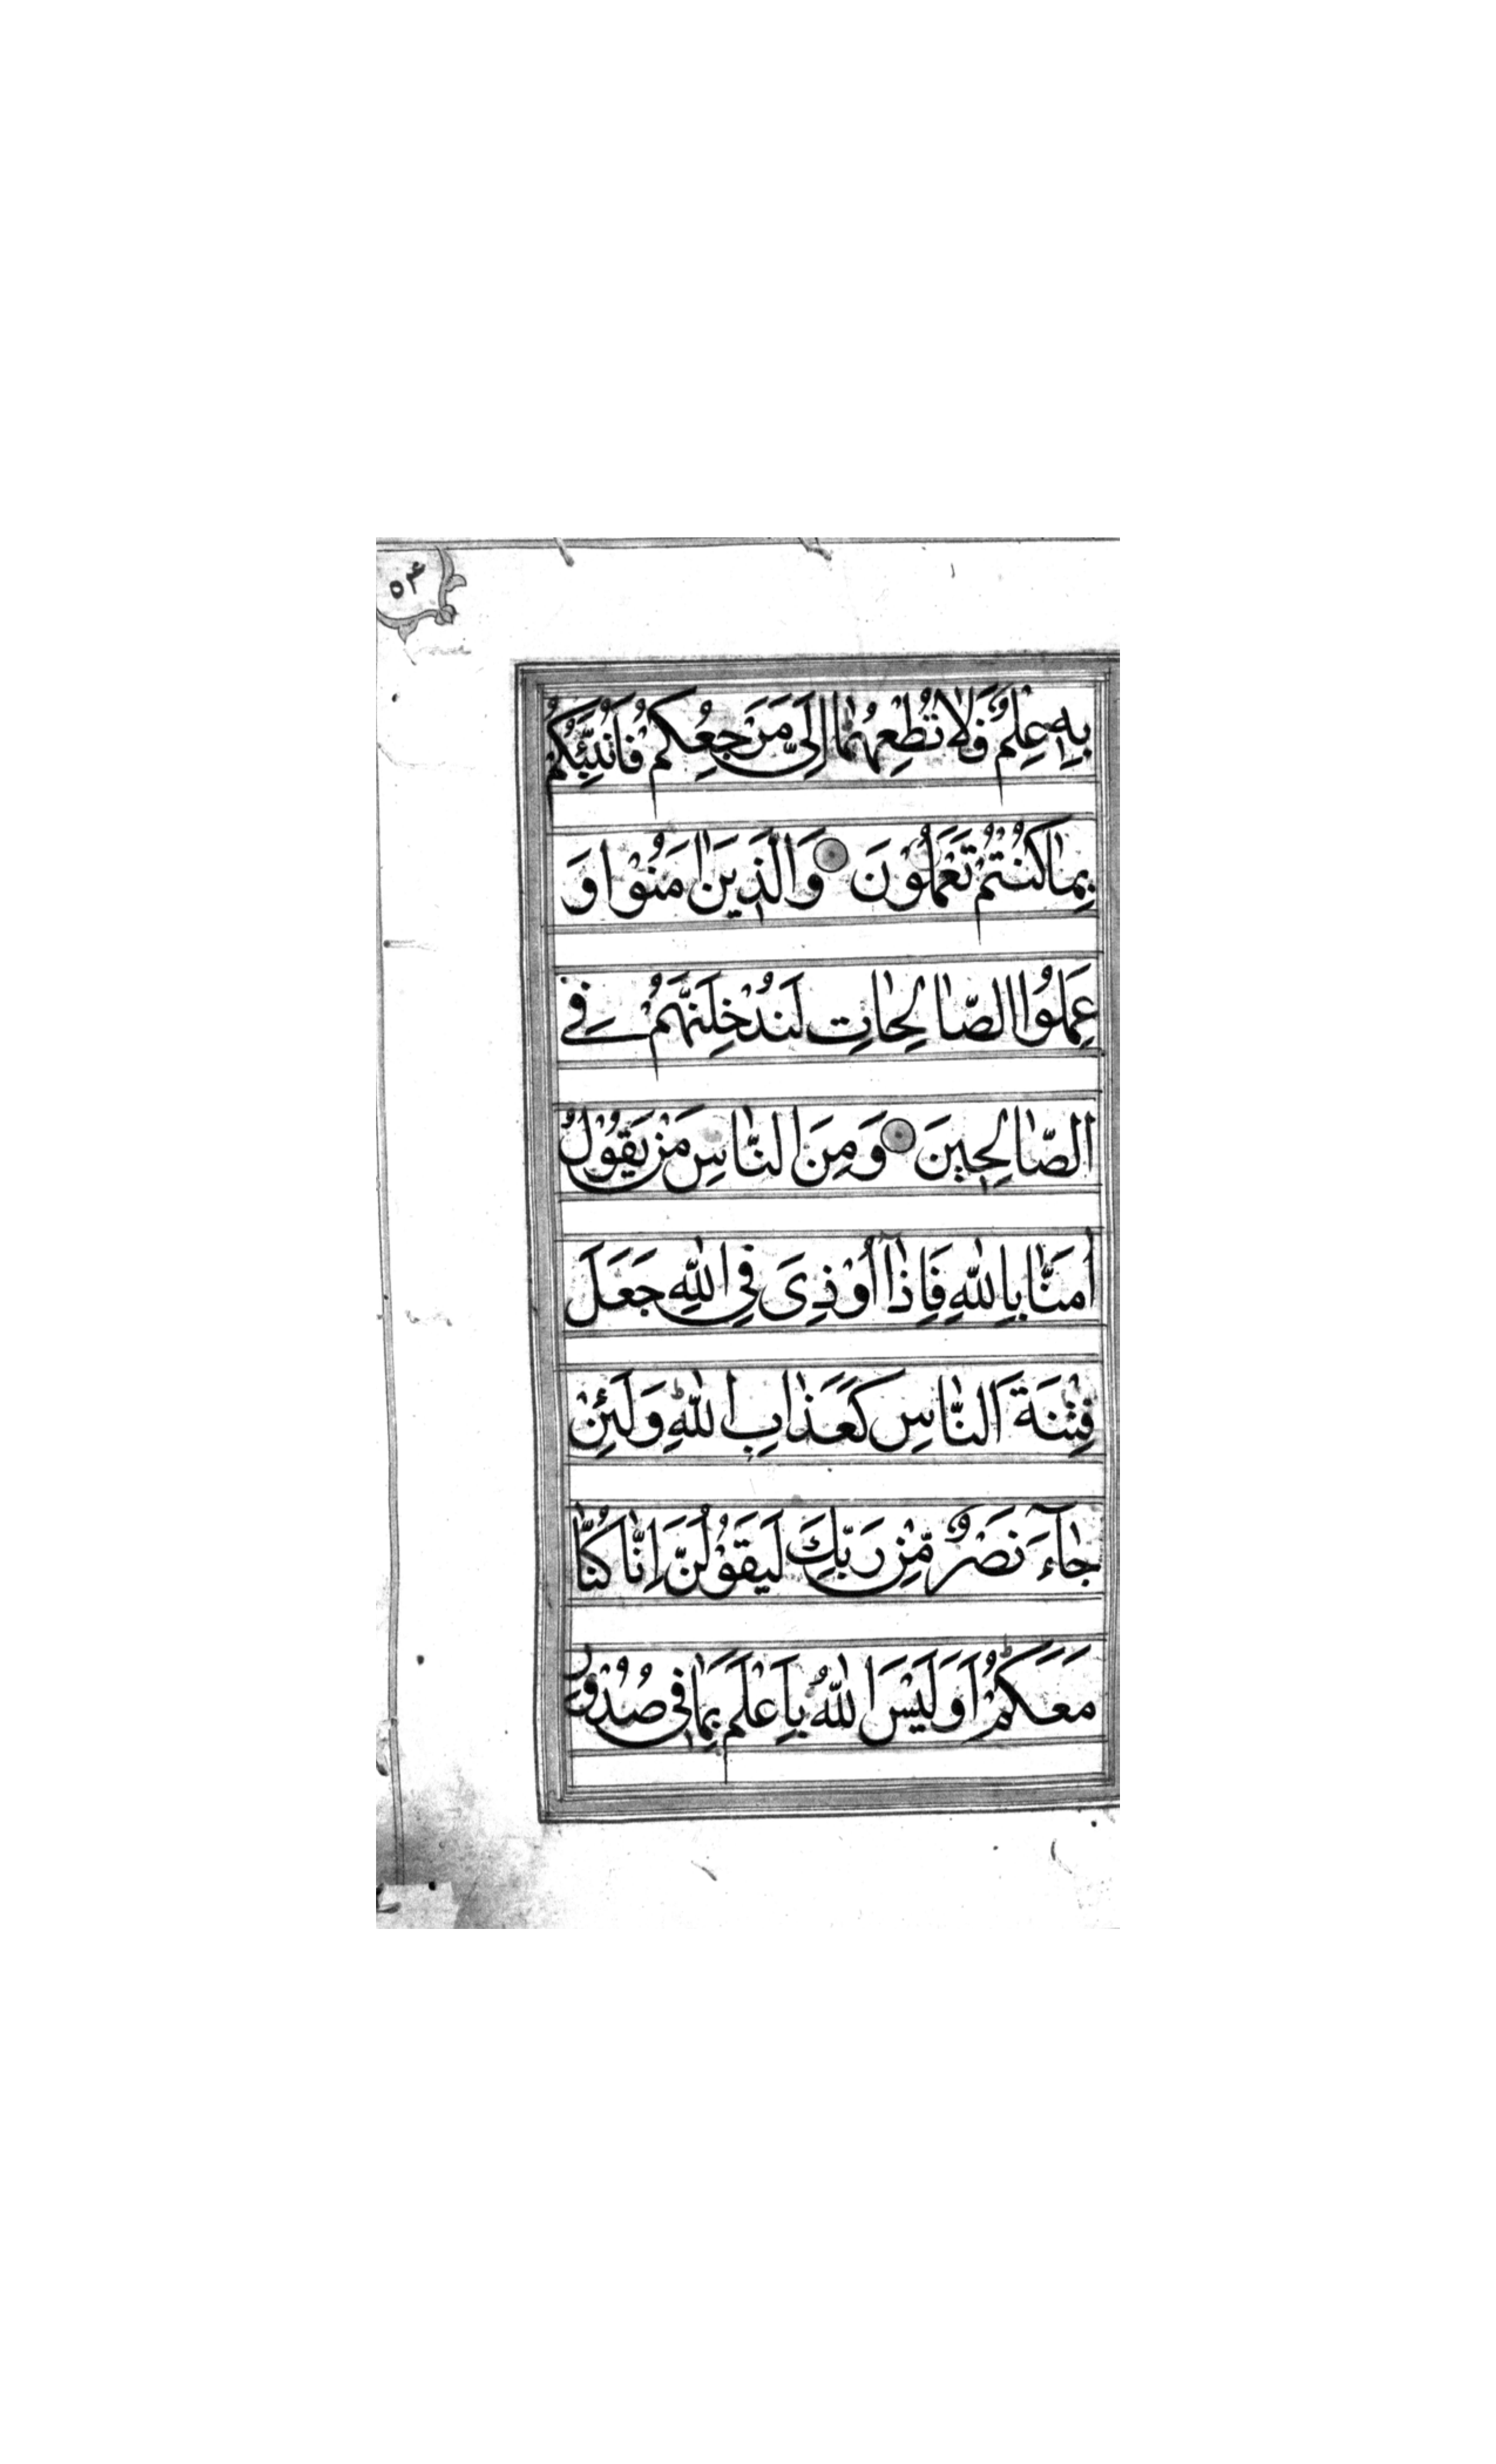 ۵۴
بِهٖ عِلْمٌ فَلَا تُطِعْهُمَا اِلَىَّ مَرْجِعُكُمْ فَاُنَبِّئُكُمْ
بِمَا كُنْتُمْ تَعْمَلُوْنَ وَالَّذِينَ اٰمَنُوْا وَ
عَمِلُوا الصَّالِحَاتِ لَنُدْخِلَنَّهُمْ فِي
الصَّالِحِينَ وَمِنَ النَّاسِ مَنْ يَقُوْلُ
اٰمَنَّا بِاللّٰهِ فَاِذَآ اُوْذِىَ فِي اللّٰهِ جَعَلَ
فِتْنَةَ النَّاسِ كَعَذَابِ اللّٰهِ وَلَئِنْ
جَآءَ نَصْرٌ مِّنْ رَبِّكَ لَيَقُوْلُنَّ اِنَّا كُنَّا
مَعَكُمْ اَوَلَيْسَ اللّٰهُ بِاَعْلَمَ بِمَا فِي صُدُوْرِ